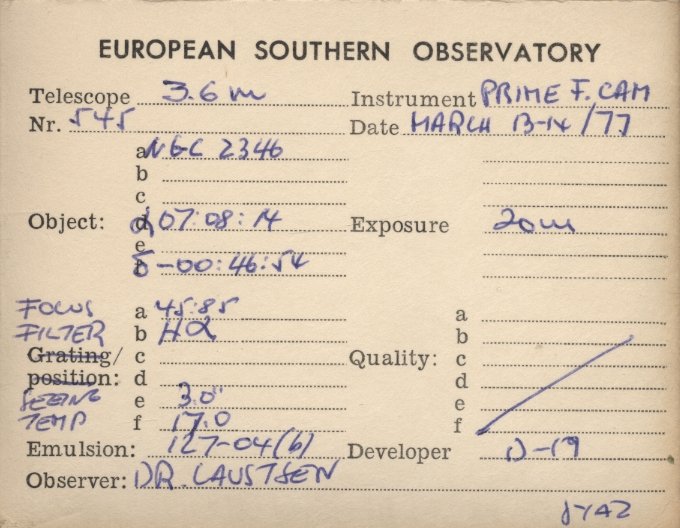 EUROPEAN SOUTHERN OBSERVATORY
Telescope 3.6 m Instrument PRIME F. CAM
Nr. 545 Date MARCH 13-14/77
a NGC 2346
b
c
Object: d α 07:08:14 Exposure 20m
e
f δ -00:46:54
FOCUS a 45.85 a
FILTER b Hα b
Grating/ c Quality: c
position: d d
SEEING e 3.0" e
TEMP f 17.0 f
Emulsion: 127-04(6) Developer D-19
Observer: DR. LAUSTSEN